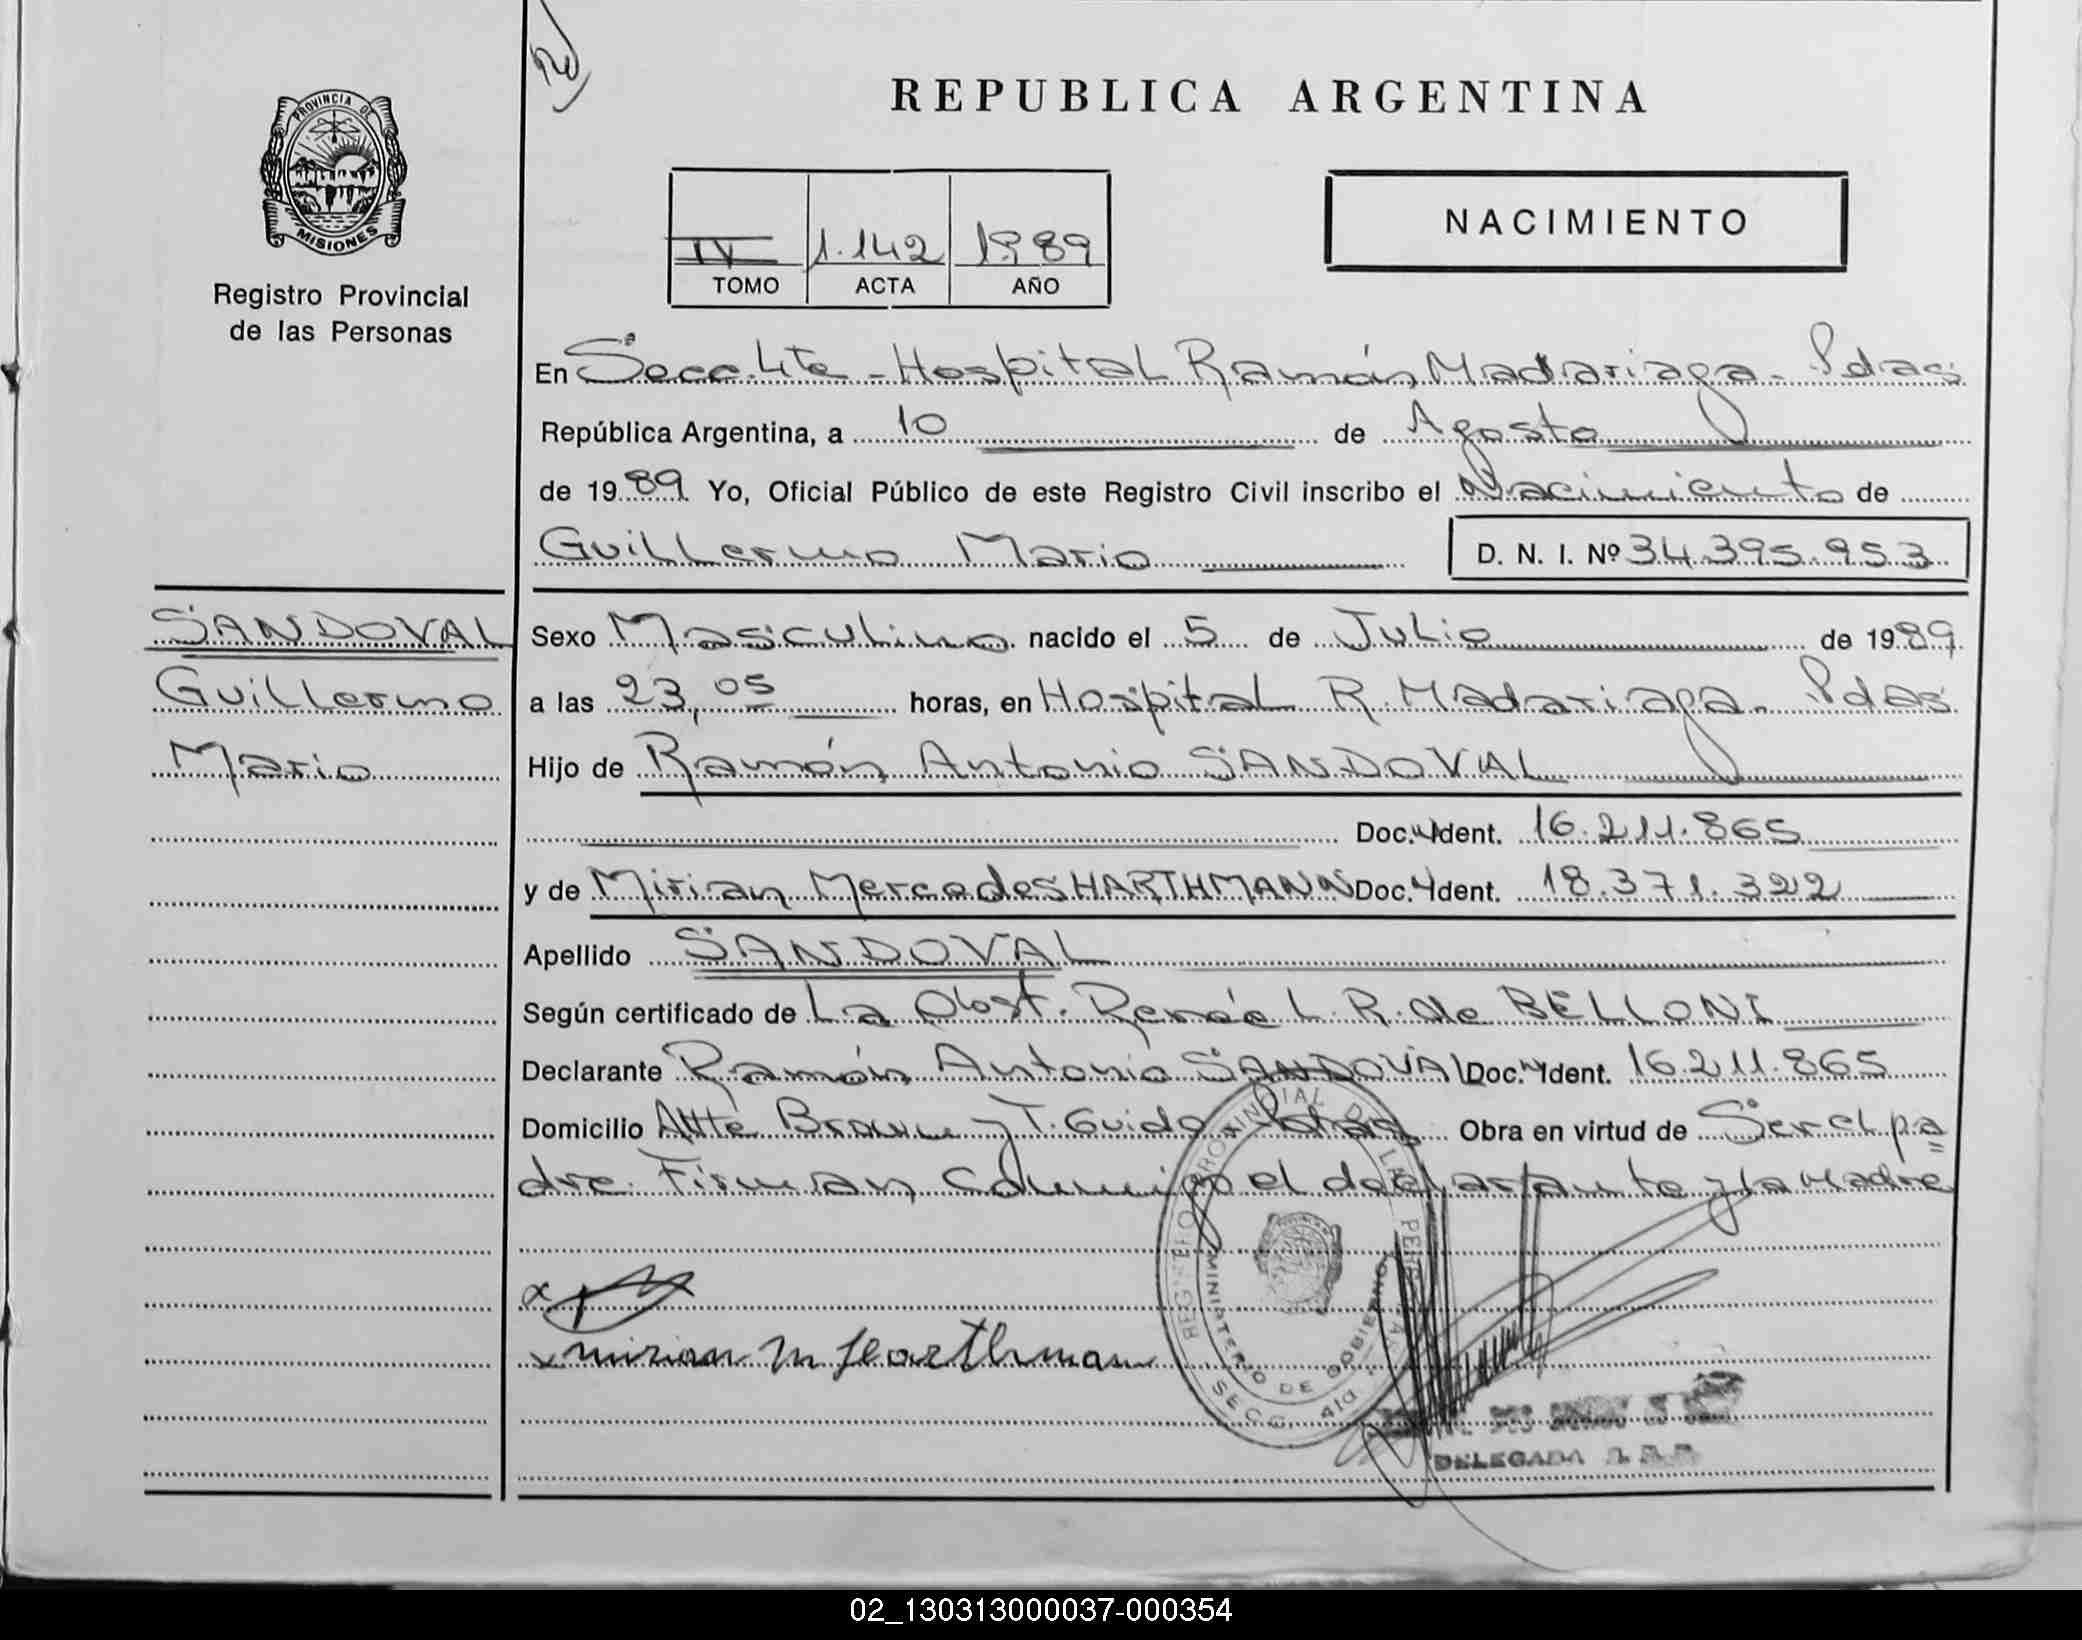 REPUBLICA ARGENTINA
PROVINCIA DE
MISIONES
Registro Provincial
de las Personas
IV 1.142 1989
TOMO ACTA AÑO
NACIMIENTO
En Secc. 4ta - Hospital Ramón Madariaga - Pdas
República Argentina, a 10 de Agosto
de 1989 Yo, Oficial Público de este Registro Civil inscribo el Nacimiento de
Guillermo Mario D. N. I. Nº 34.395.953
SANDOVAL
Guillermo
Mario
Sexo Masculino nacido el 5 de Julio de 1989
a las 23,05 horas, en Hospital R. Madariaga - Pdas
Hijo de Ramón Antonio SANDOVAL
Doc. Ident. 16.211.865
y de Mirian Mercedes HARTHMANN Doc. Ident. 18.371.322
Apellido SANDOVAL
Según certificado de La Obst. Renée L. R. de BELLONI
Declarante Ramón Antonio SANDOVAL Doc. Ident. 16.211.865
Domicilio Altte Brown y T. Guido Pdas Obra en virtud de Ser el pa
dre. Firman conmigo el declarante y la Madre
mirian M Hearthman
REGISTRO PROVINCIAL DE LAS PERSONAS
MINISTERIO DE GOBIERNO
SECC. 4ta
DELEGADA
02_130313000037-000354